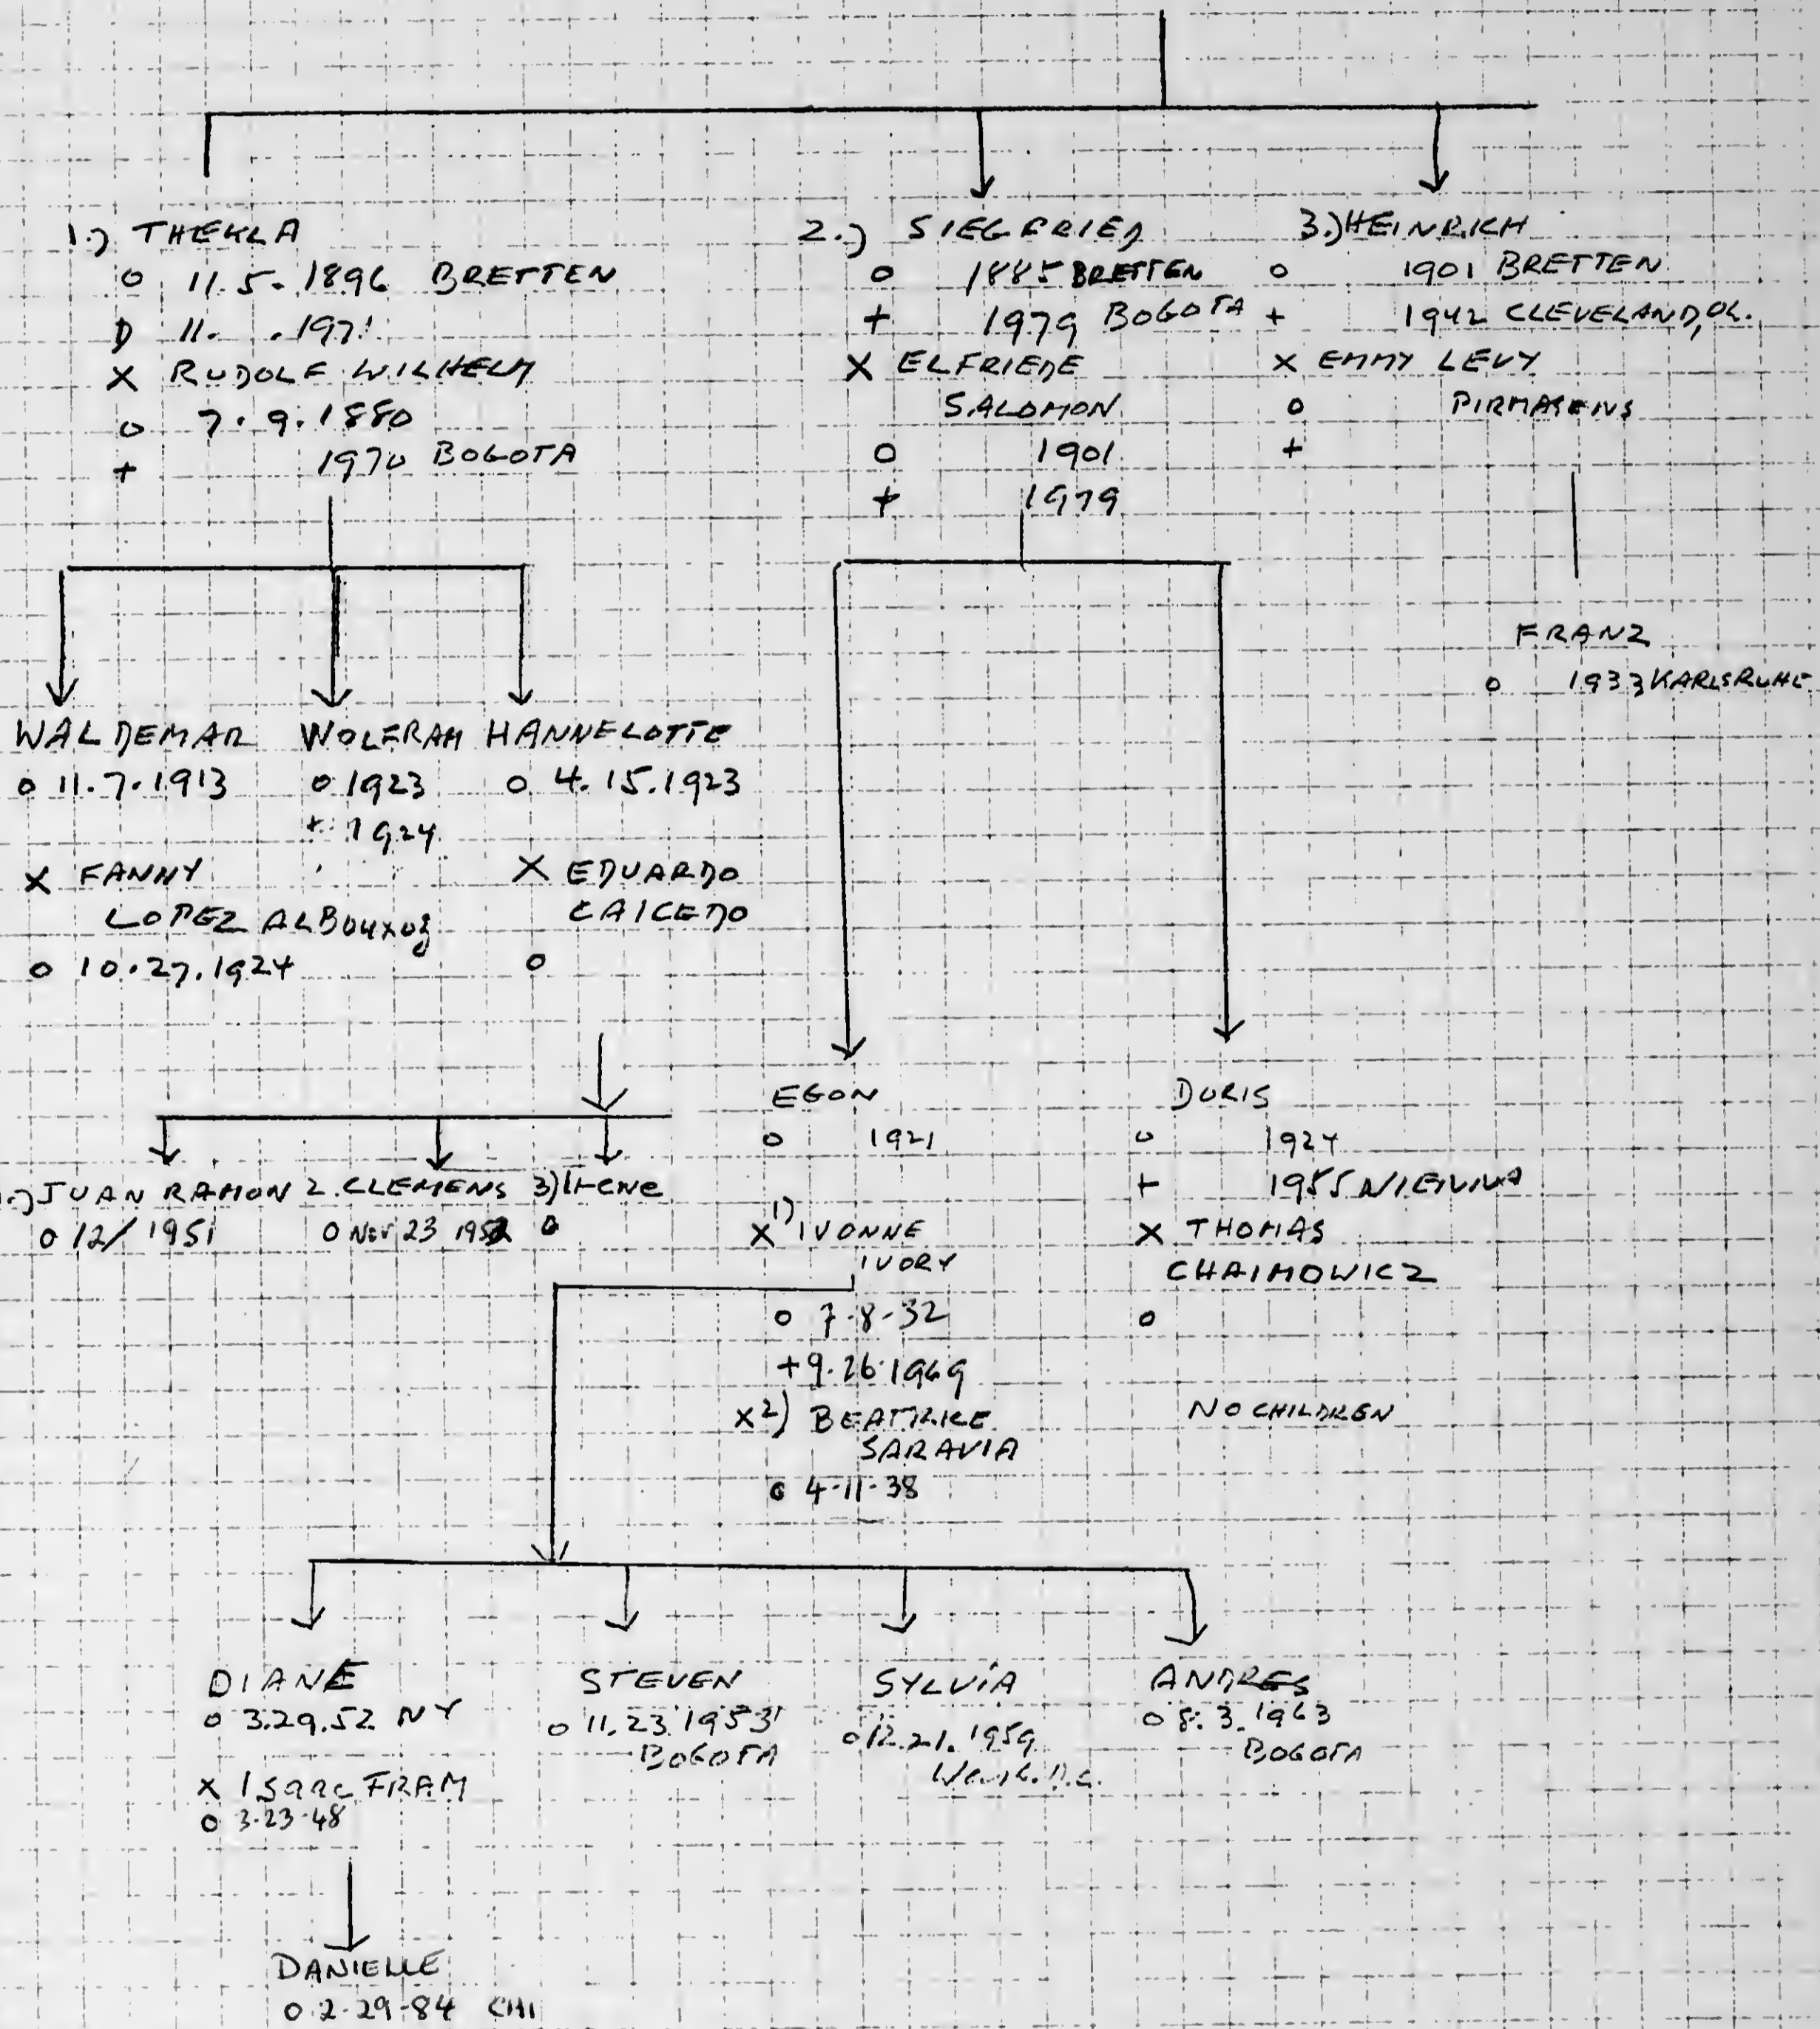 1.) THEKLA
o 11.5.1896 BRETTEN
D 11. .197
X RUDOLF WILHELM
o 7.9.1880
+ 1970 BOGOTA
2.) SIEGFRIED
o 1885 BRETTEN
+ 1979 BOGOTA
X ELFRIEDE
SALOMON
o 1901
+ 1979
3.) HEINRICH
o 1901 BRETTEN
+ 1942 CLEVELAND, OL.
X EMMY LEVY
o PIRMASENS
+
WALDEMAR
o 11.7.1913
X FANNY
LOPEZ
o 10.27.1924
WOLFRAM
o 1923
+ 1924
HANNELOTTE
o 4.15.1923
X EDUARDO
CAICEDO
o
FRANZ
o 1933 KARLSRUHE
.) JUAN RAMON
o 12/1951
2. CLEMENS
o NOV 23 1952
3) Irene
o
EGON
o 1921
X 1) IVONNE
IVORY
o 7-8-32
+ 9.26.1969
X 2) BEATRICE
SARAVIA
o 4-11-38
DORIS
o 1924
+ 1955
X THOMAS
CHAIMOWICZ
o
NO CHILDREN
DIANE
o 3.29.52 NY
X Isaac FRAM
o 3-23-48
STEVEN
o 11.23.1953
BOGOTA
SYLVÍA
o 12.21.1959
Wash. D.C.
ANDRES
o 8.3.1963
BOGOTA
DANIELLE
o 2-29-84 CHI